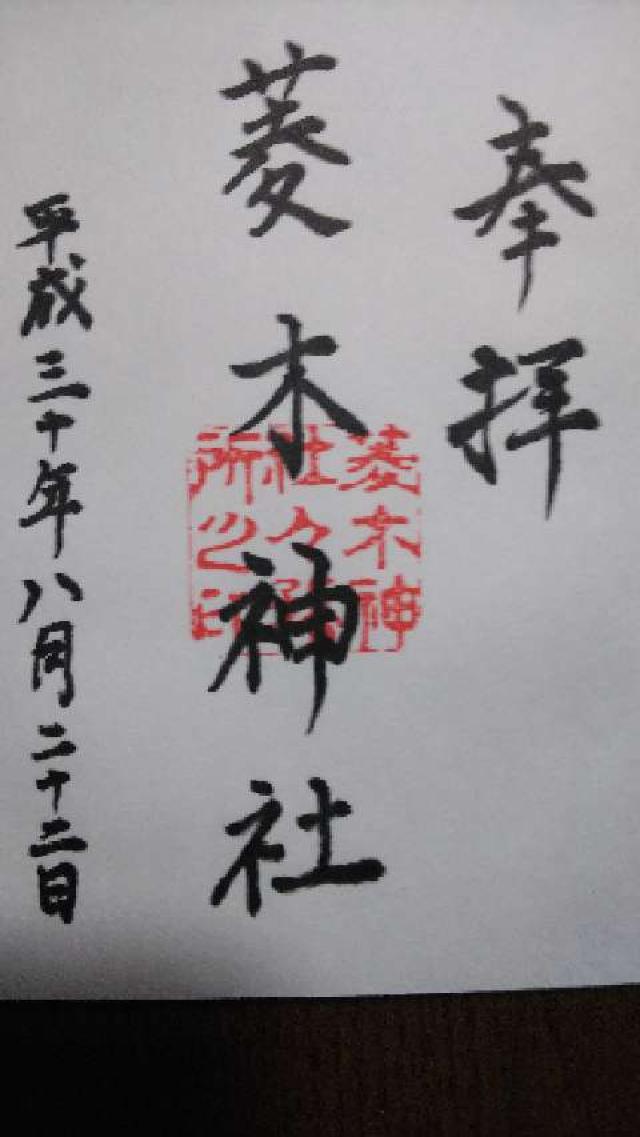 奉拝
菱木神社
菱木神
社々務
所之印
平成三十年八月二十二日